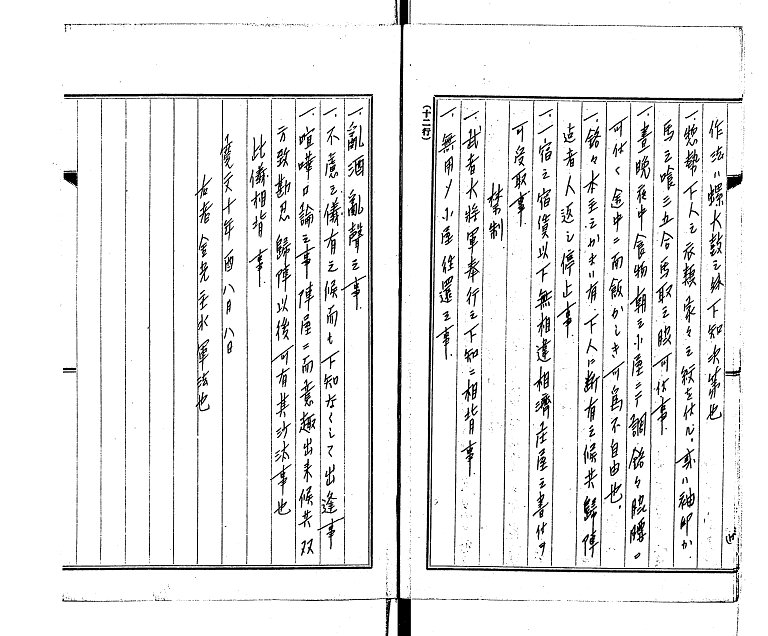 作法ハ螺大鼓之外下知次第也
一、惣勢下人之衣類家々之紋を仕ル、或ハ袖印か
馬之喰三五合馬取之股可仕事
一、晝晩夜中食物朝之小屋ニテ調銘々腰
可仕ク途中ニ而飯かしき可為不自由也、
一、銘々本主之かまい有下人に断有之候共歸陣
迄者人返シ停止事
一、宿之宿賃以下無相違相濟庄屋之書付ヲ
可受取事
禁制
一、武者大将軍奉行之下知ニ相背事
一、無用ノ小屋往還之事
(十二行)
一、亂酒亂聲之事
一、不慮之儀有之候而も下知なくして出逢事
一、喧嘩口論之事陣屋ニ而意趣出来候共双
方致勘忍歸陣以後可有其沙汰事也
此儀相背事
寛文十年酉八月八日
右者金光主水軍法也